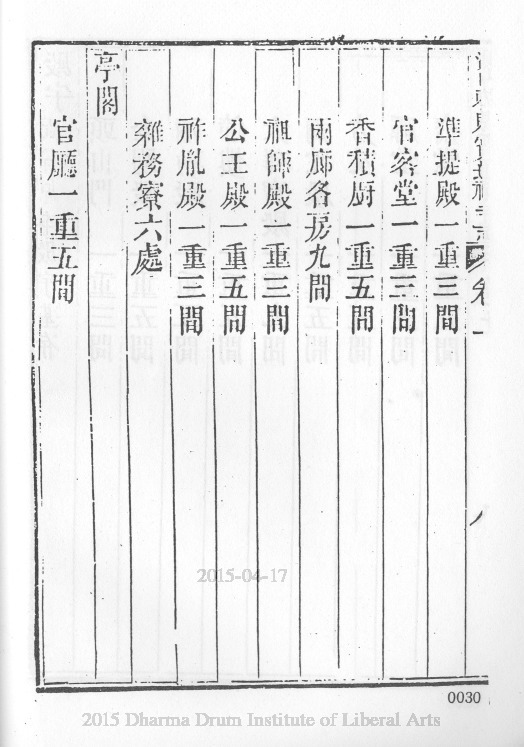 寺志 卷一
八
準提殿一重三間
官客堂一重三間
香積廚一重五間
兩廊各房九間
祖師殿一重三間
公王殿一重五間
祚胤殿一重三間
雜務寮六處
亭閣
官廳一重五間
2015-04-17
0030
2015 Dharma Drum Institute of Liberal Arts